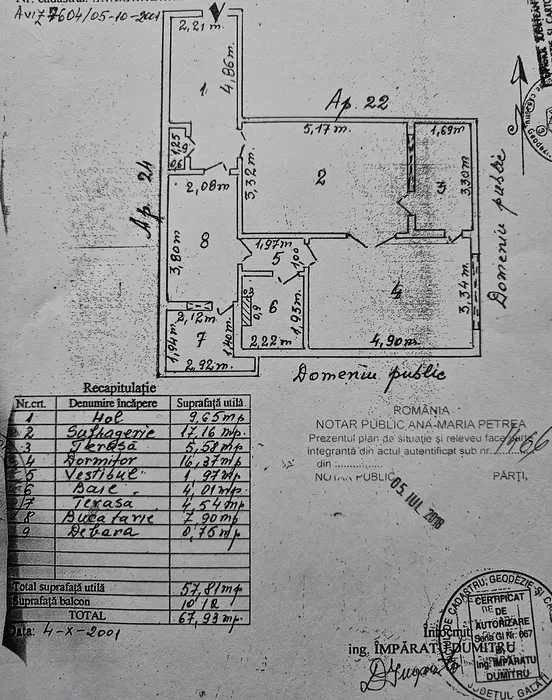 Aviz 7604/05-10-2001
2,21 m.
4,86 m.
1
Ap. 22
5,17 m.
1,69 m.
1,25
9
0,6
2,08 m
3,32 m.
2
3
3,30 m.
Ap. 24
Domeniu public
3,80 m.
8
1,97 m.
5
1,00
4
3,34 m.
6
0,9
1,95 m.
2,12 m.
7
1,94 m.
1,40 m.
2,22 m.
4,90 m.
2,92 m.
Domeniu public
Recapitulație
Nr.crt. Denumire încăpere Suprafață utilă
1 Hol 9,65 mp
2 Sufragerie 17,16 mp.
3 Terasă 5,58 mp.
4 Dormitor 16,37 mp.
5 Vestibul 1,97 mp
6 Baie 4,01 mp.
7 Terasa 4,54 mp.
8 Bucatarie 7,90 mp
9 Debara 0,75 mp.
Total suprafață utilă 57,81 mp
Suprafață balcon 10,12
TOTAL 67,93 mp.
Data: 4-X-2001
ROMÂNIA
NOTAR PUBLIC ANA-MARIA PETREA
Prezentul plan de situație și releveu face parte
integrantă din actul autentificat sub nr. 1486
din ..............
NOTAR PUBLIC PĂRȚI,
05. IUL. 2018
Întocmit
ing. ÎMPĂRATU DUMITRU
CERTIFICAT
DE
AUTORIZARE
Seria Gl Nr. 667
Ing. ÎMPĂRATU
DUMITRU